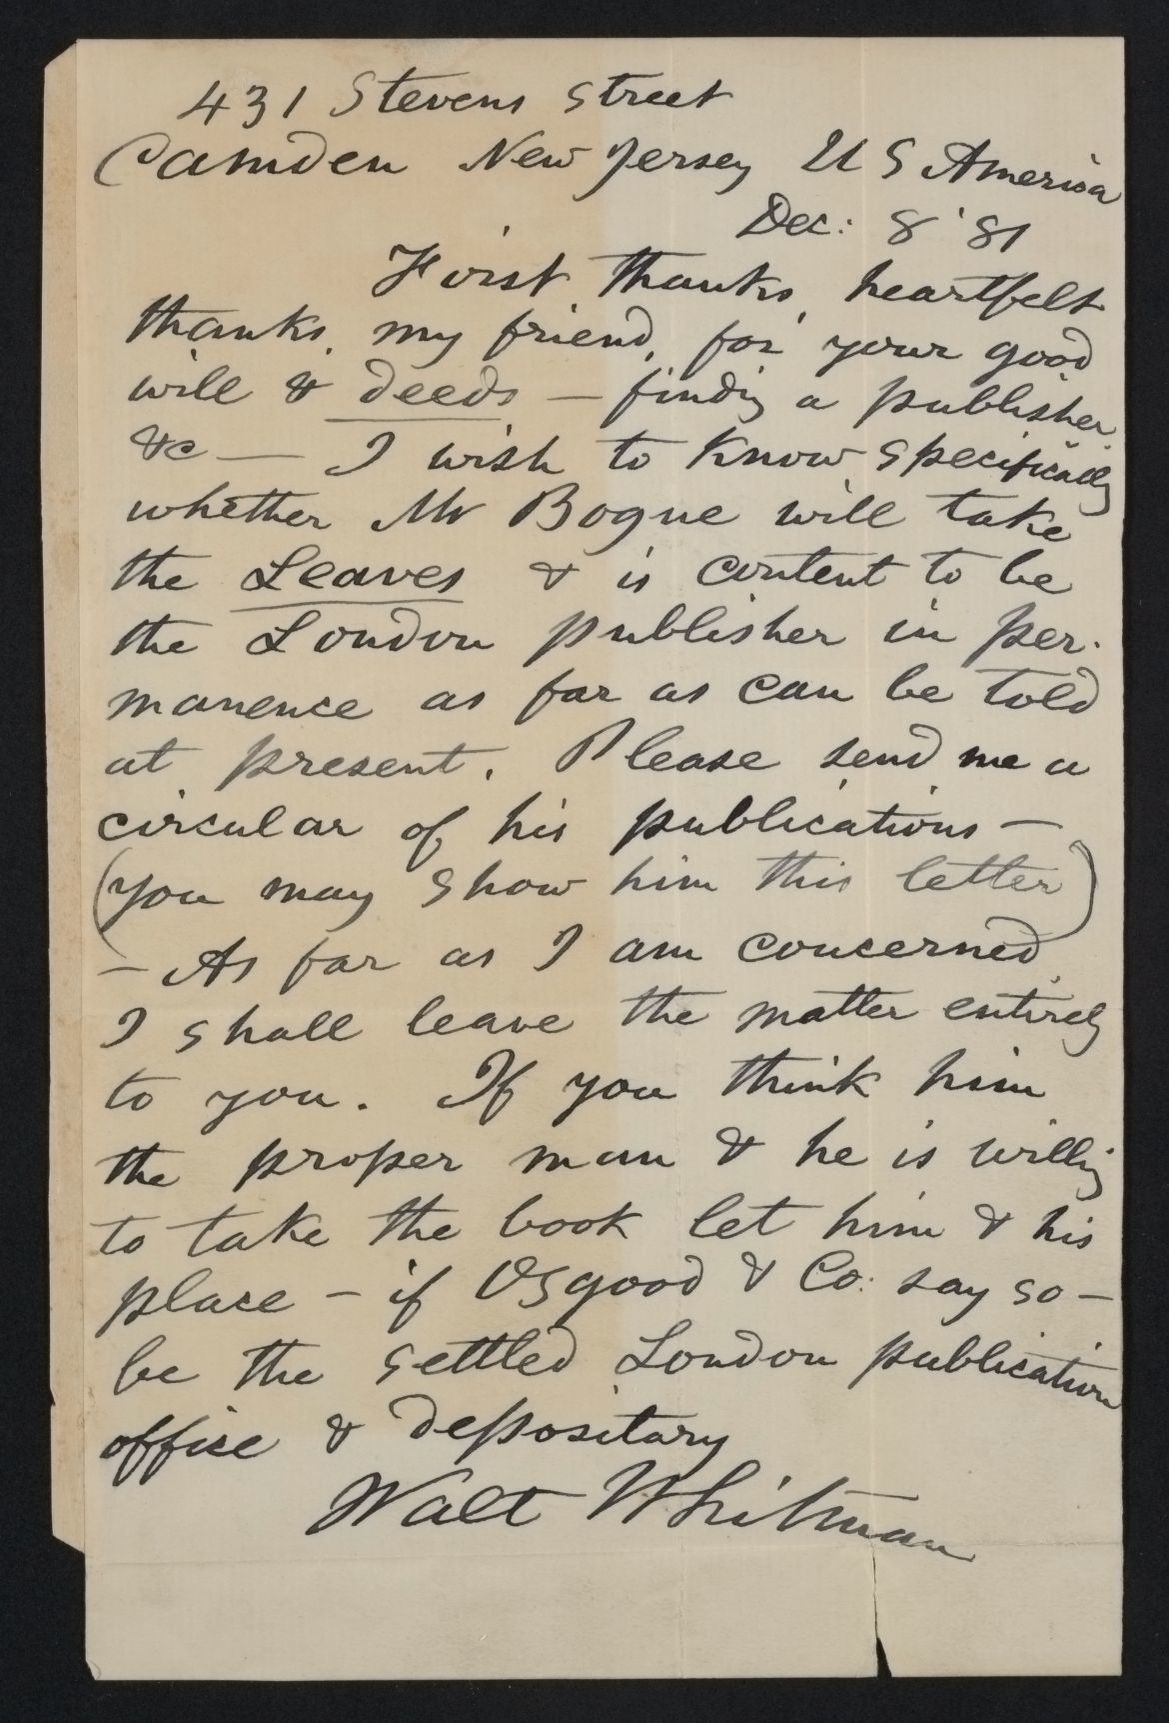 431 Stevens Street
Camden New Jersey U S America
Dec: 8 '81
First, thanks, heartfelt
thanks, my friend, for your good
will & deeds — finding a publisher,
&c — I wish to know specifically
whether Mr Bogue will take
the Leaves & is content to be
the London publisher in per-
manence as far as can be told
at present. Please send me a
circular of his publications —
(you may show him this letter)
— As far as I am concerned,
I shall leave the matter entirely
to you. If you think him
the proper man & he is willing
to take the book let him & his
place — if Osgood & Co: say so —
be the settled London publication
office & depositary
Walt Whitman